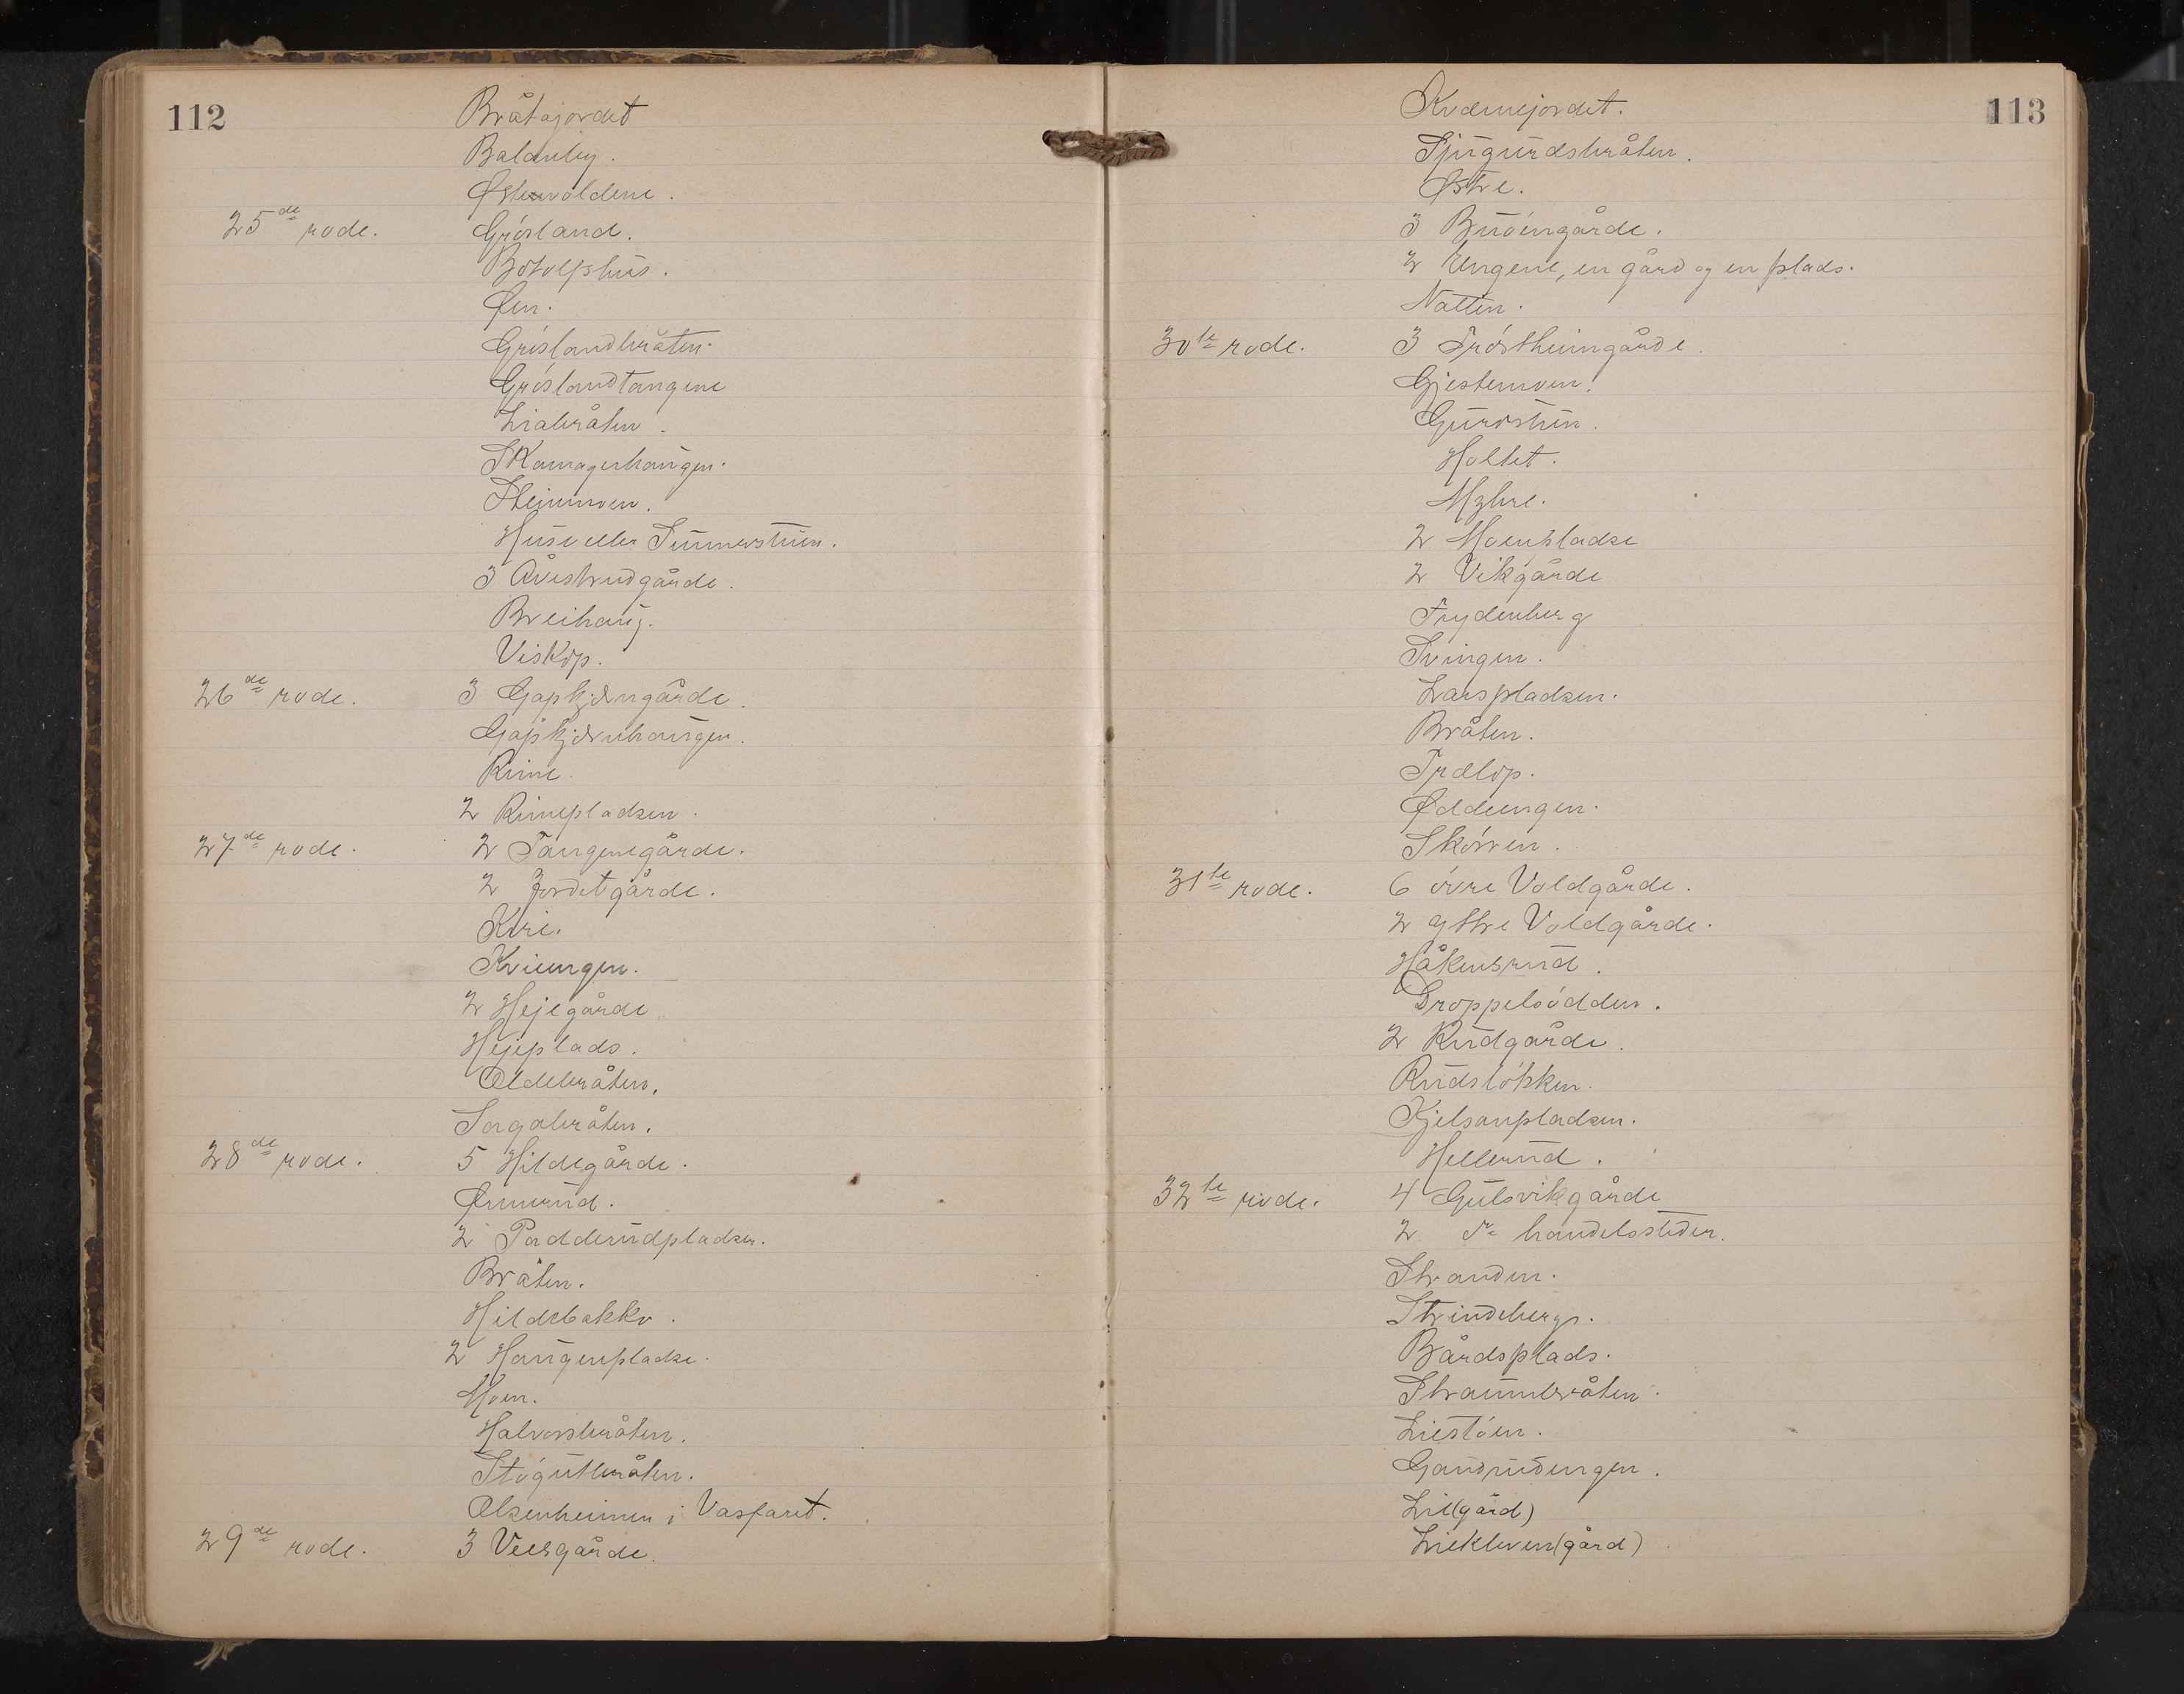 112
Bråtajordet
Balanby.
Østenvoldene.
25de rode. Grösland.
Botolfshus.
Øen.
Gröslandbråten.
Gröslandtangene
Liabråten.
Skamagerhaugen.
Steinmoen.
Huse eller Simmerstuen.
3 Åvestrudgårde.
Breihaug.
Viskop.
26de rode. 3 Gapkjerngårde.
Gapkjernhaugen.
Rime.
2 Rimepladsen.
27de rode. 2 Tangenegårde.
2 Jordetgårde.
Kvie.
Kvieungen.
2 Hejegårde.
Hejeplads.
Oldebråten.
Sagabråten.
28de rode. 5 Hildegårde.
Ørmerud.
2 Padderudpladser.
Bråten.
Hildebakko.
2 Haugenpladse.
Moen.
Halvorsbråten.
Stögutbråten.
Olsenheimen i Vasfaret.
29de rode. 3 Veesgårde.
113
Kvernejordet.
Sjugurdsbråten.
Østre.
3 Buöengårde.
2 Engene, en gård og en plads.
Natten.
30te rode. 3 Tröstheimgårde.
Gjestemoen.
Gurostuen.
Holtet.
Myhre.
2 Moenpladse
2 Vikgårde
Frydenberg
Svingen.
Larspladsen.
Bråten.
Trælop.
Øddeengen.
Skörven.
31te rode. 6 övre Voldgårde.
2 yttre Voldgårde.
Håkensrud.
Droppelsödden.
2 Rudgårde.
Rudslökken.
Kjelsanpladsen.
Hellerud.
32te rode. 4 Gulsvikgårde
2 do handelssteder.
Stranden.
Strindeberg.
Bårdsplads.
Straumbråten.
Liestöen.
Gandrudengen.
Lie (gård)
Liekleven (gård)